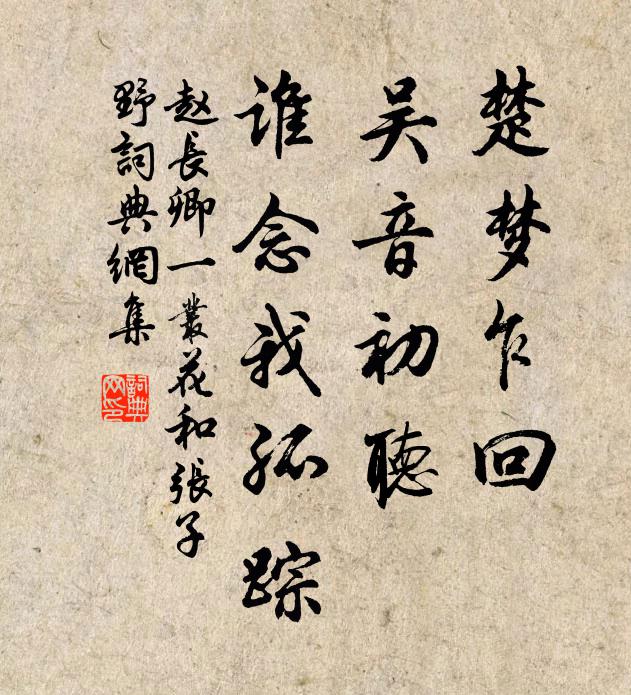 楚梦乍回
吴音初聽
谁念我孤踪
赵長卿一叢花和張子
野詞典網集
詞典网印